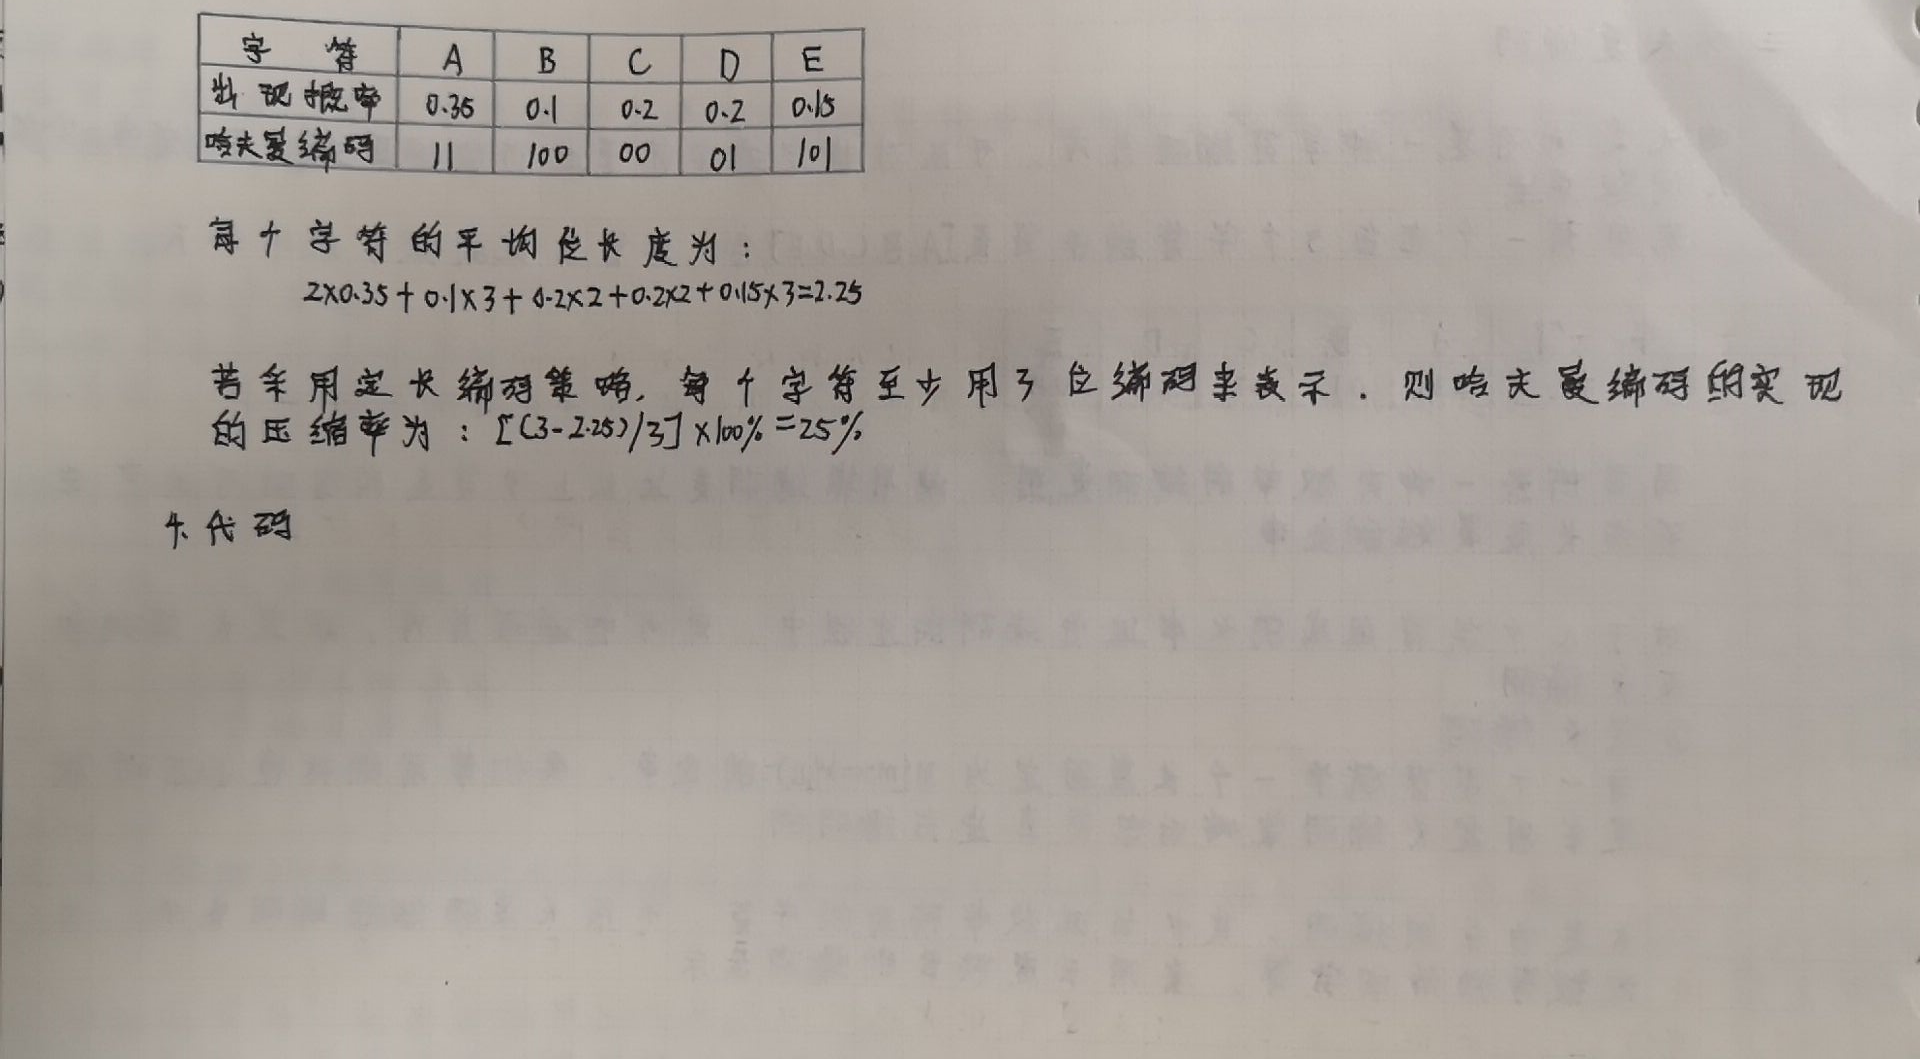 字 符 A B C D E
出现概率 0.35 0.1 0.2 0.2 0.15
哈夫曼编码 11 100 00 01 101
每个字符的平均位长度为：
2×0.35+0.1×3+0.2×2+0.2×2+0.15×3=2.25
若采用定长编码策略，每个字符至少用3位编码来表示．则哈夫曼编码的实现
的压缩率为：[(3-2.25)/3]×100%=25%
4.代码